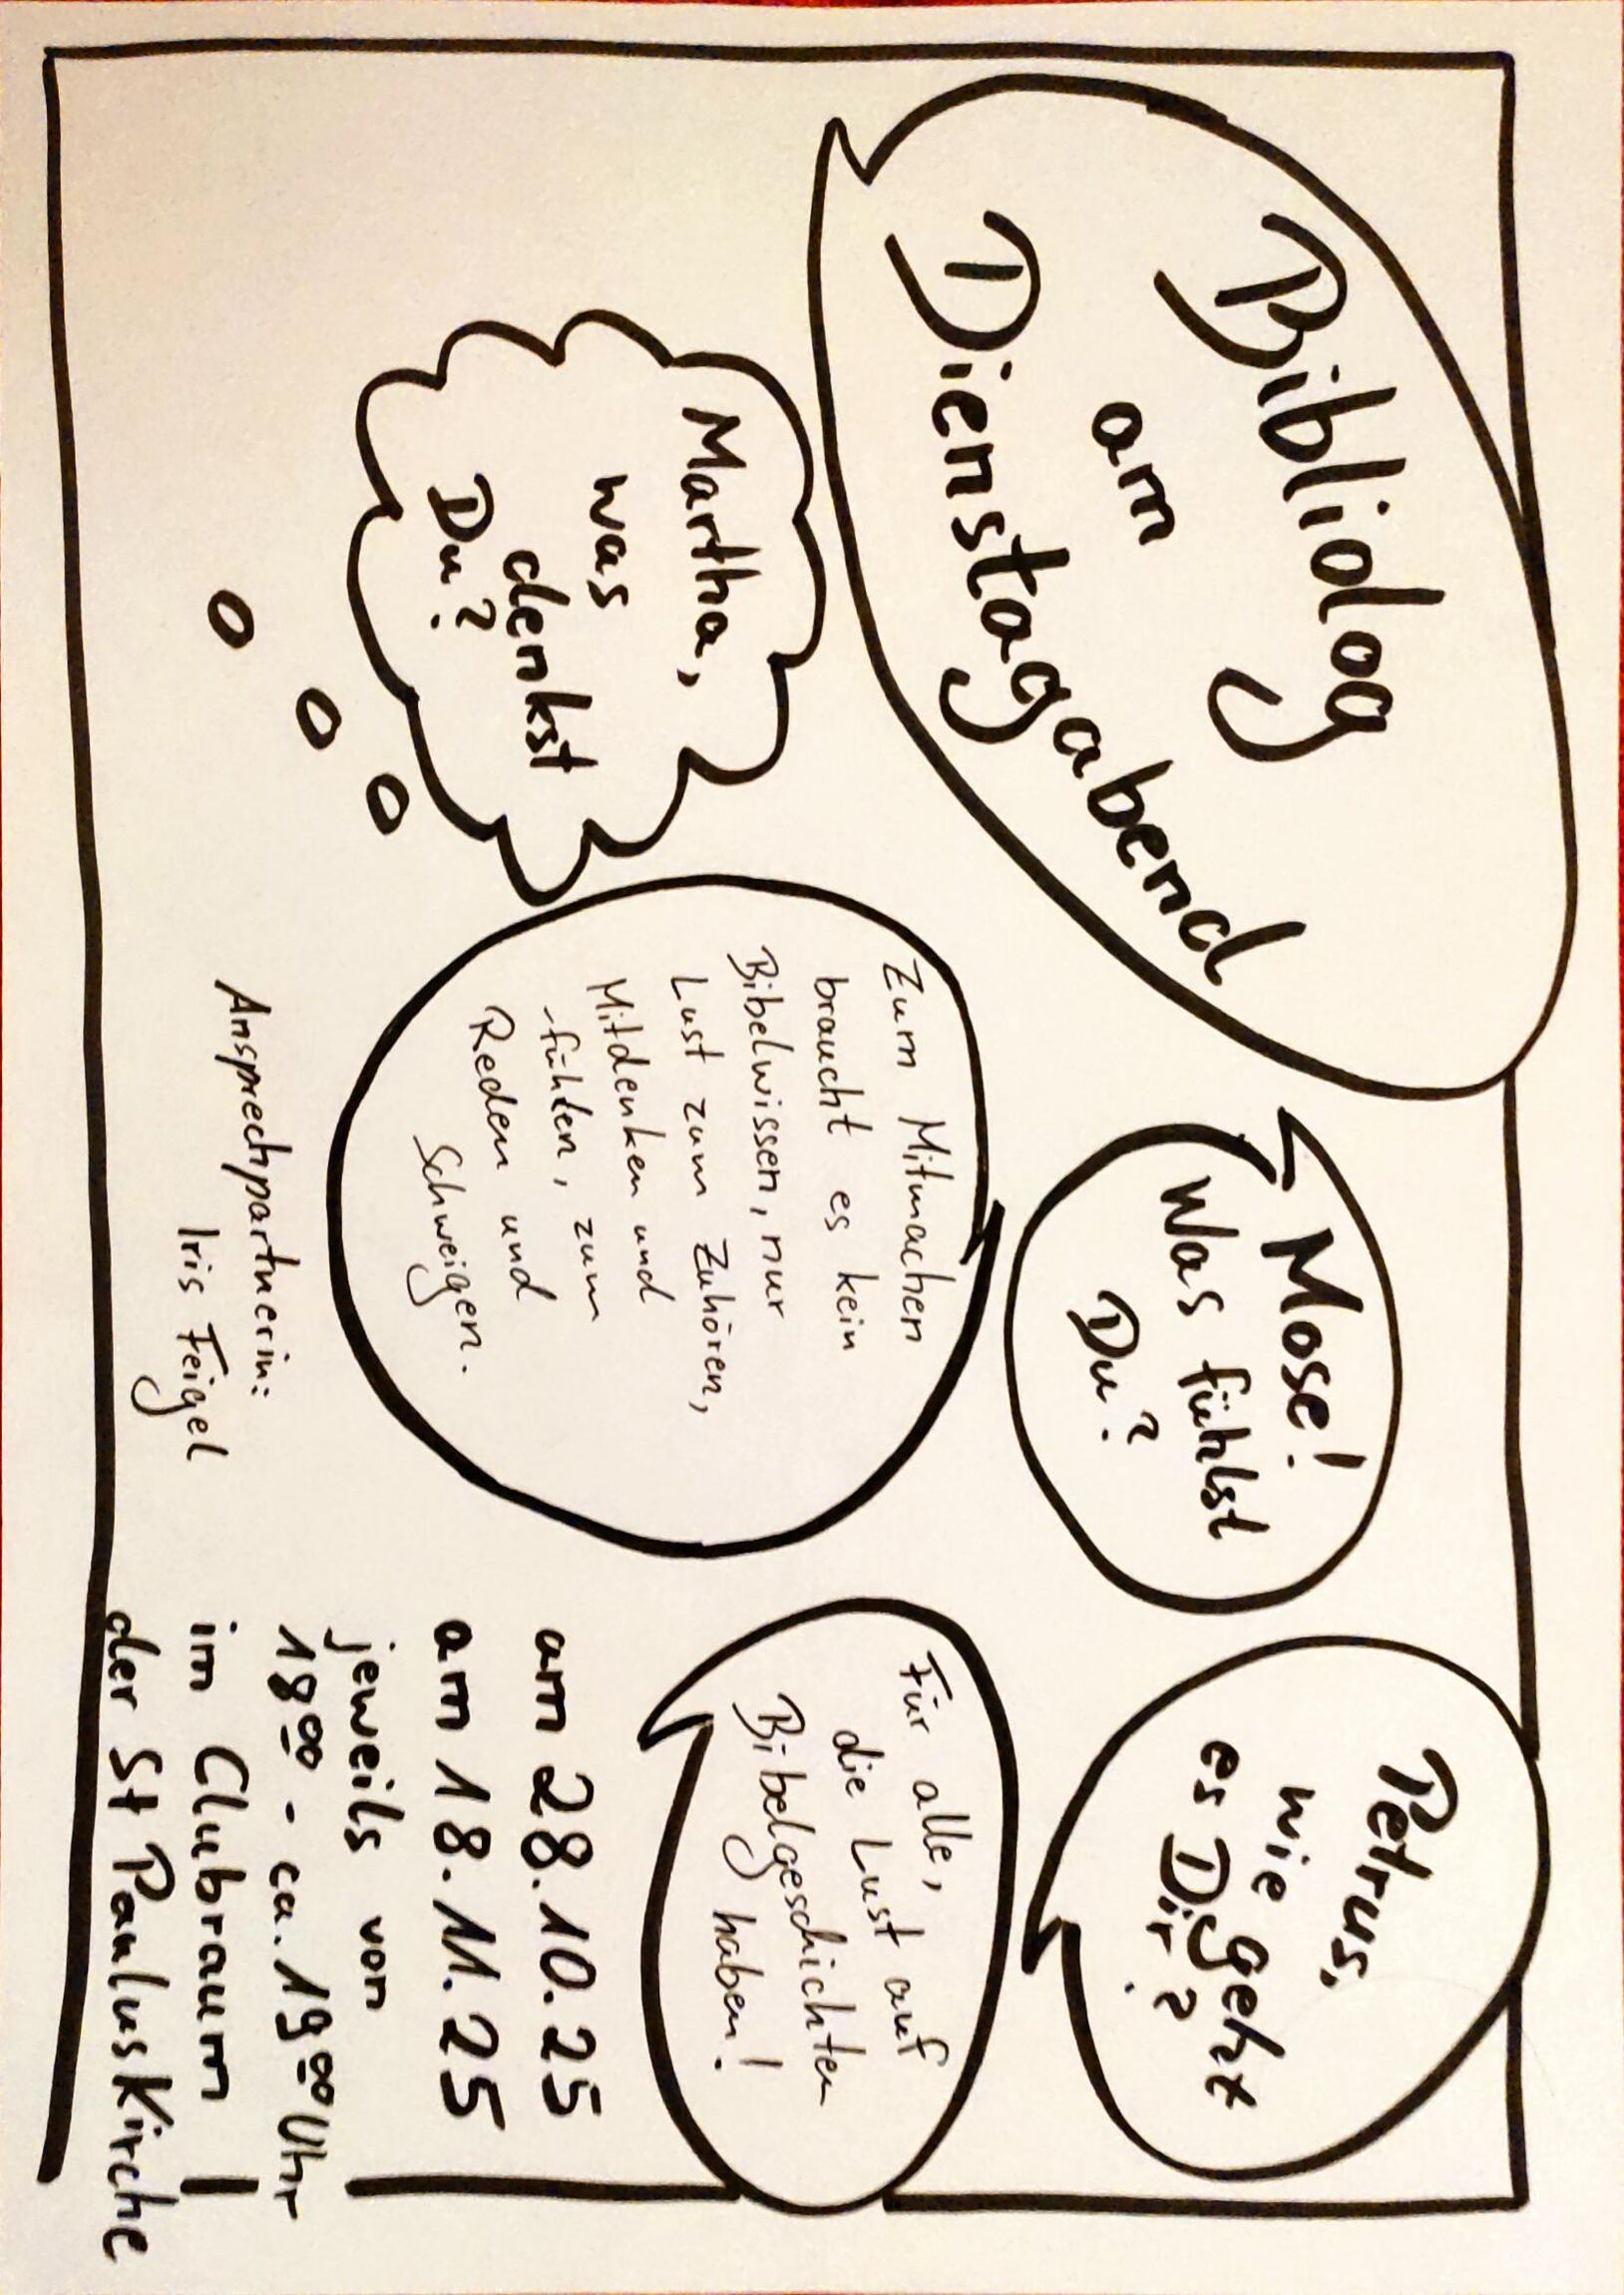 Bibliolog
am
Dienstagabend
Mose!
Was fühlst
Du?
Petrus,
wie geht
es Dir?
Martha,
was
denkst
Du?
Zum Mitmachen
braucht es kein
Bibelwissen, nur
Lust zum Zuhören,
Mitdenken und
-fühlen, zum
Reden und
Schweigen.
Für alle,
die Lust auf
Bibelgeschichten
haben!
am 28.10.25
am 18.11.25
jeweils von
18⁰⁰ - ca. 19⁰⁰ Uhr
im Clubraum
der St Paulus Kirche
Ansprechpartnerin:
Iris Feigel